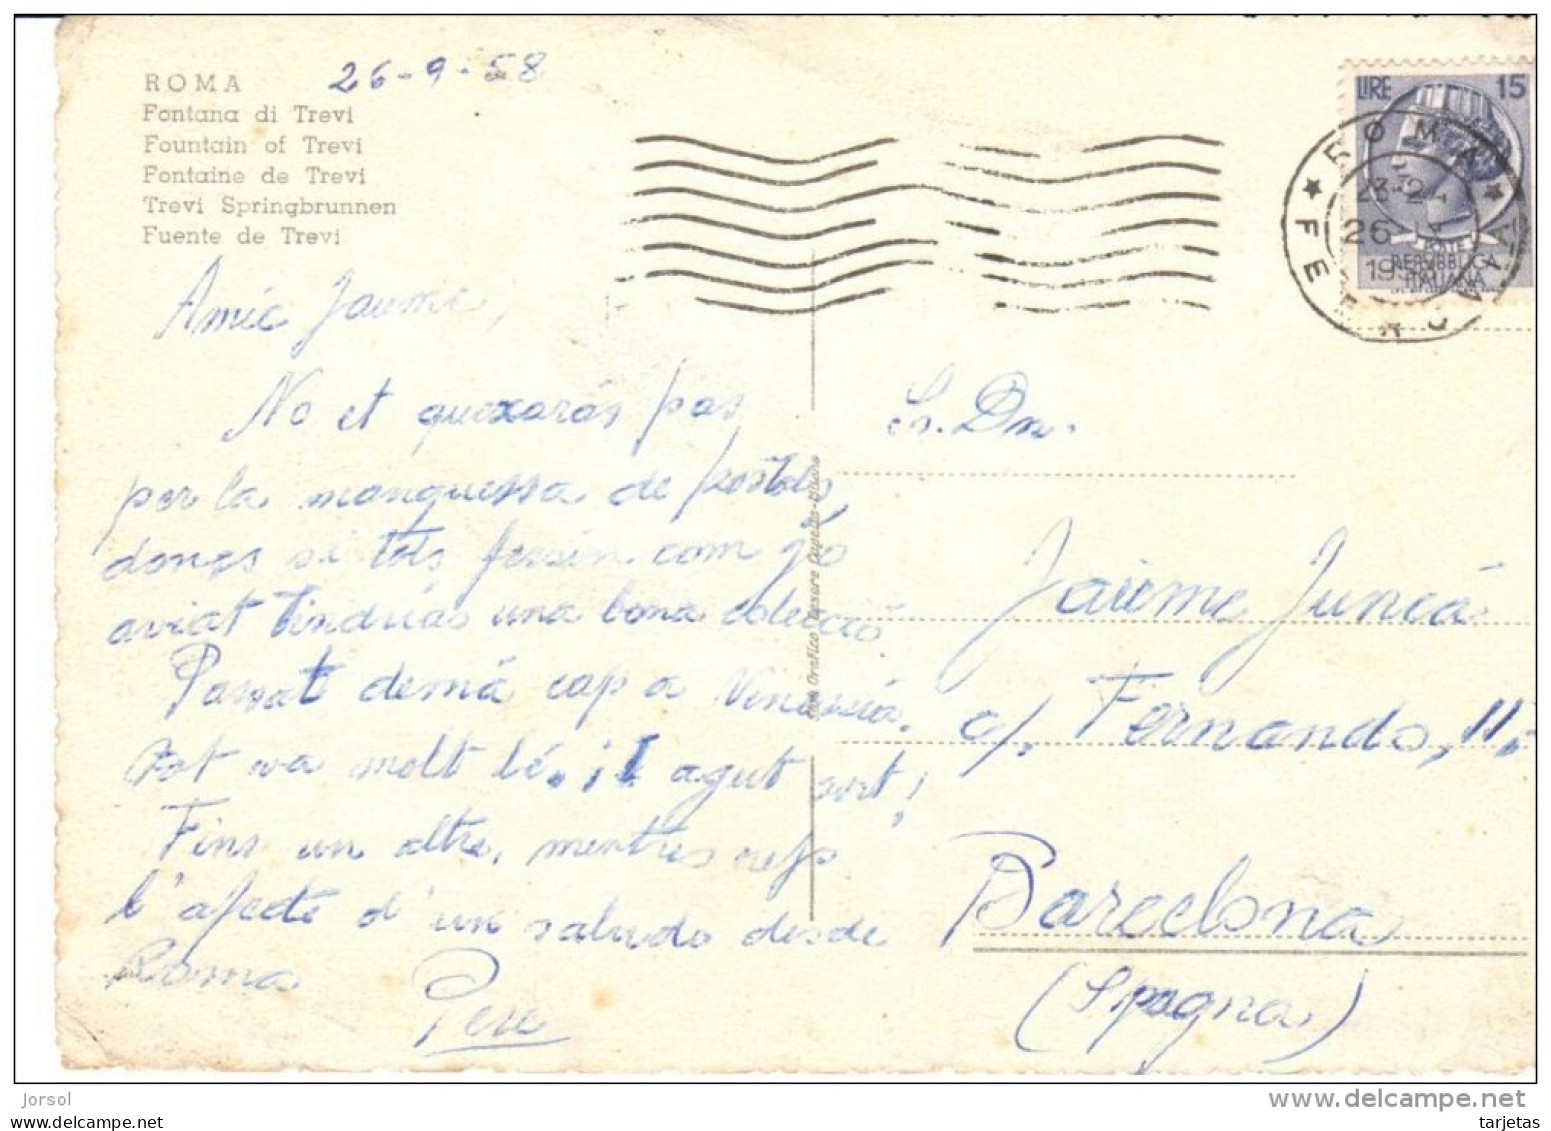 ROMA
26-9-58
Fontana di Trevi
Fountain of Trevi
Fontaine de Trevi
Trevi Springbrunnen
Fuente de Trevi
LIRE 15
ROMA
26
1958
POSTE
REPUBBLICA
ITALIANA
Amic Jaume,
No et quexarás pas
per la manquessa de postals,
doncs si tots fessin com jo
aviat tindrías una bona colecció.
Passat demá cap a Venecia.
Tot va molt bé. agut sort!
Fins un altre, mentres reps
l'afecte d'un saludo desde
Roma
Pere
Sr. Dn.
Jaume Juncá
c/. Fernando, 11,
Barcelona
(Spagna)
Jorsol
www.delcampe.net
www.todocoleccion.net
tarjetas